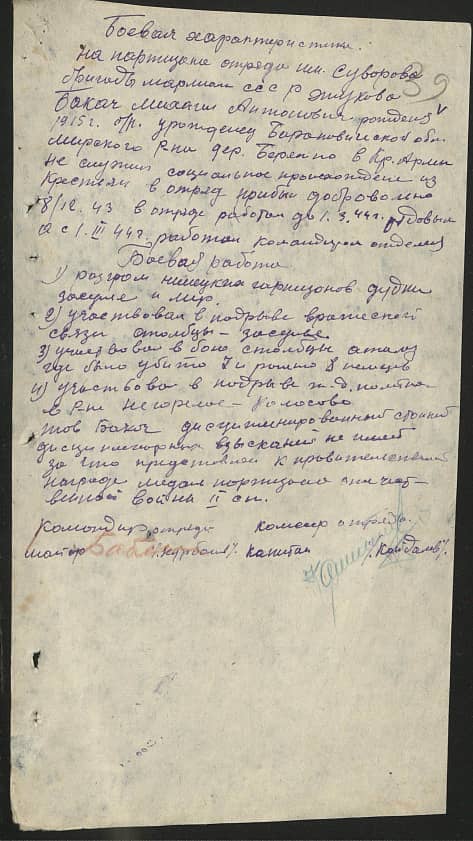 Боевая характеристика
39
на партизана отряда им. Суворова
бригады маршала ссср Жукова
Бакач Михаил Антонович рождения
1915г. б/п. уроженец Барановичской обл.
Мирского р-на дер. Березно в Кр. Армии
не служил социальное происхождение из
крестьян в отряд прибыл добровольно
8/12. 43 в отряде работал до 1. 3. 44г. рядовым
а с 1. III 44г. работал командиром отделен
Боевая работа
1) разгром немецких гарнизонов
засулье и мир.
2) участвовал в подрыве вражеской
связи столбцы – засулье
3) участвовал в бою столбцы
где было убито 7 и ранено 8 немцев
4) участвовал в подрыве ж.д. полотна
в р-не Негорелое – Колосово
тов Бакач дисциплинированный стойкий
дисциплинарных взысканий не имел
за что представлен к правительственной
награде медали партизана отечест-
венной войны II ст.
Командир отряда комиссар отряда
майор капитан